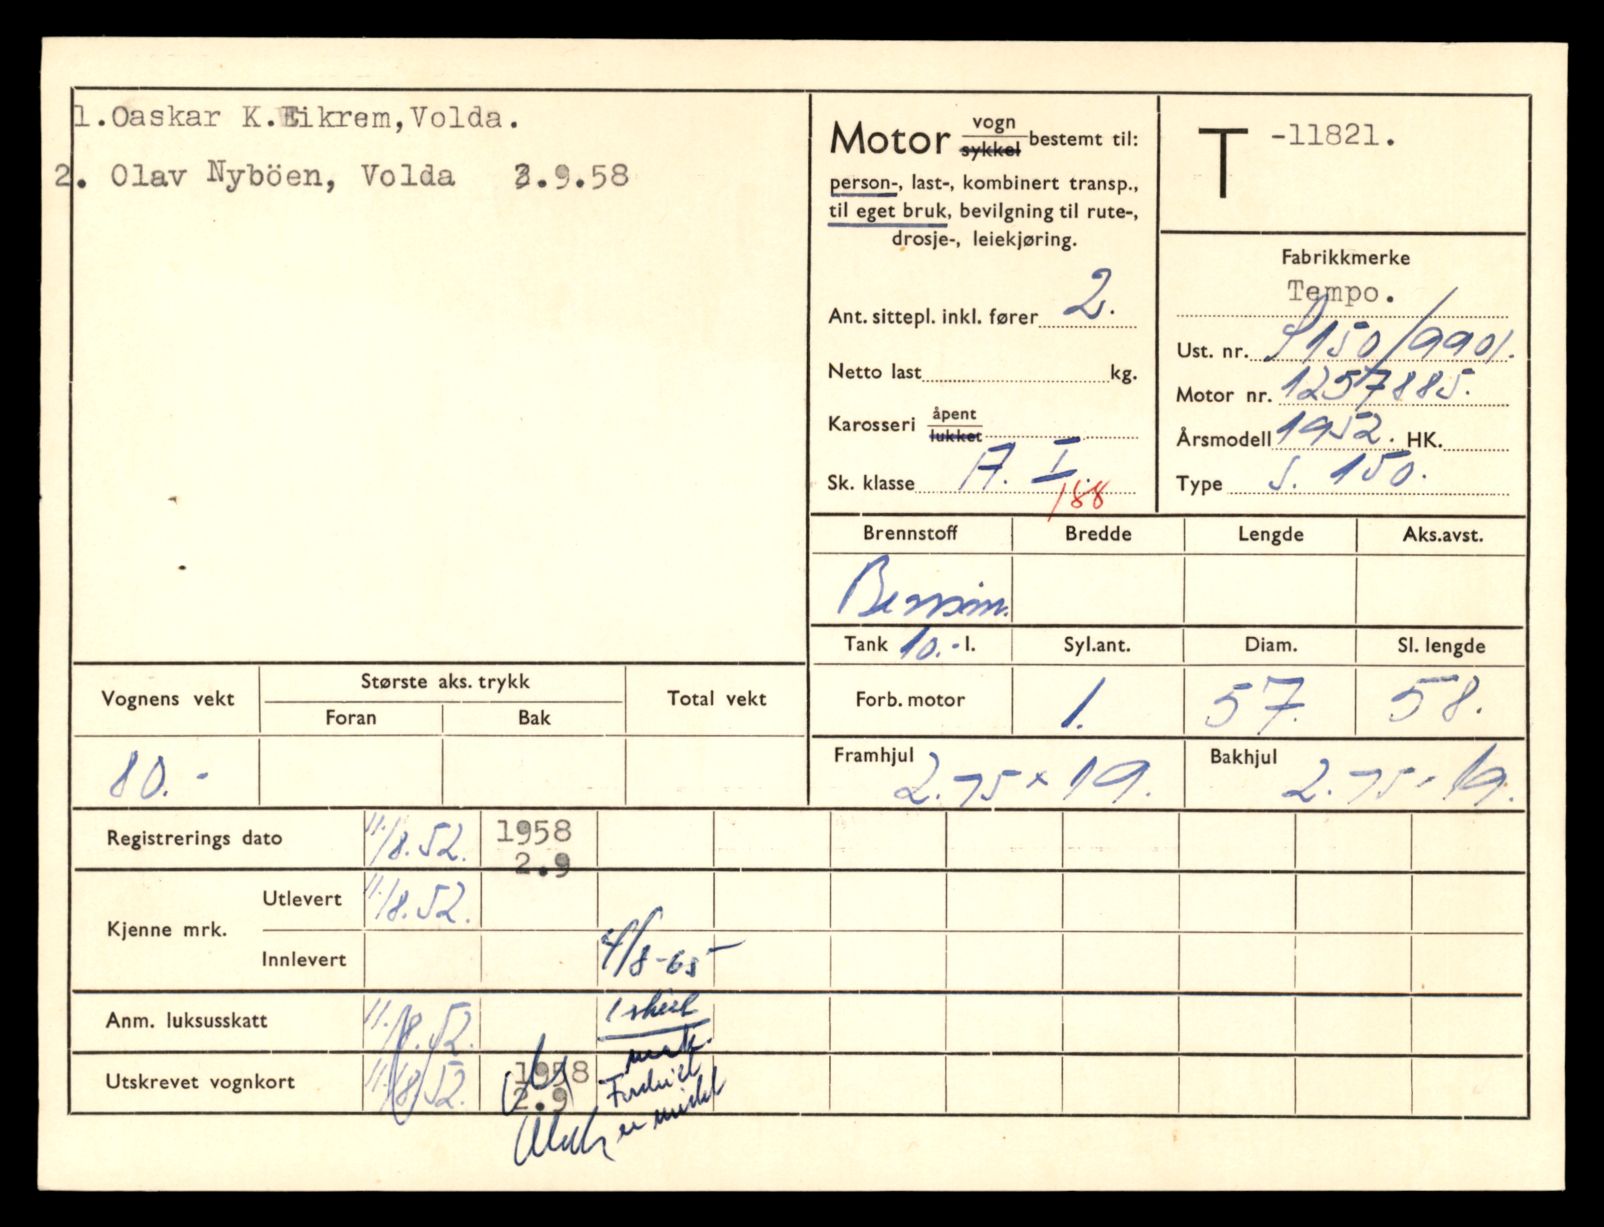 1.Oaskar K.Eikrem,Volda.
2. Olav Nyböen, Volda 2.9.58
Motor vogn sykkel bestemt til:
person-, last-, kombinert transp.,
til eget bruk, bevilgning til rute-,
drosje-, leiekjøring.
Ant. sittepl. inkl. fører 2.
Netto last kg.
Karosseri åpent lukket
Sk. klasse A. I.
188
T -11821.
Fabrikkmerke
Tempo.
Ust. nr. S150/9901.
Motor nr. 1257885.
Årsmodell 1952. HK.
Type S. 150.
Brennstoff Bredde Lengde Aks.avst.
Bensin.
Tank 10.- l. Syl.ant. Diam. Sl. lengde
Forb. motor 1. 57. 58.
Framhjul 2.75 x 19. Bakhjul 2.75 x 19.
Vognens vekt Største aks. trykk Total vekt
Foran Bak
80.-
Registrerings dato 11./8.52. 1958
2.9
Kjenne mrk. Utlevert 11./8.52.
Innlevert 4/8-65
Anm. luksusskatt 11./8.52. 1 skilt
Utskrevet vognkort 11./8.52. 1958
2.9